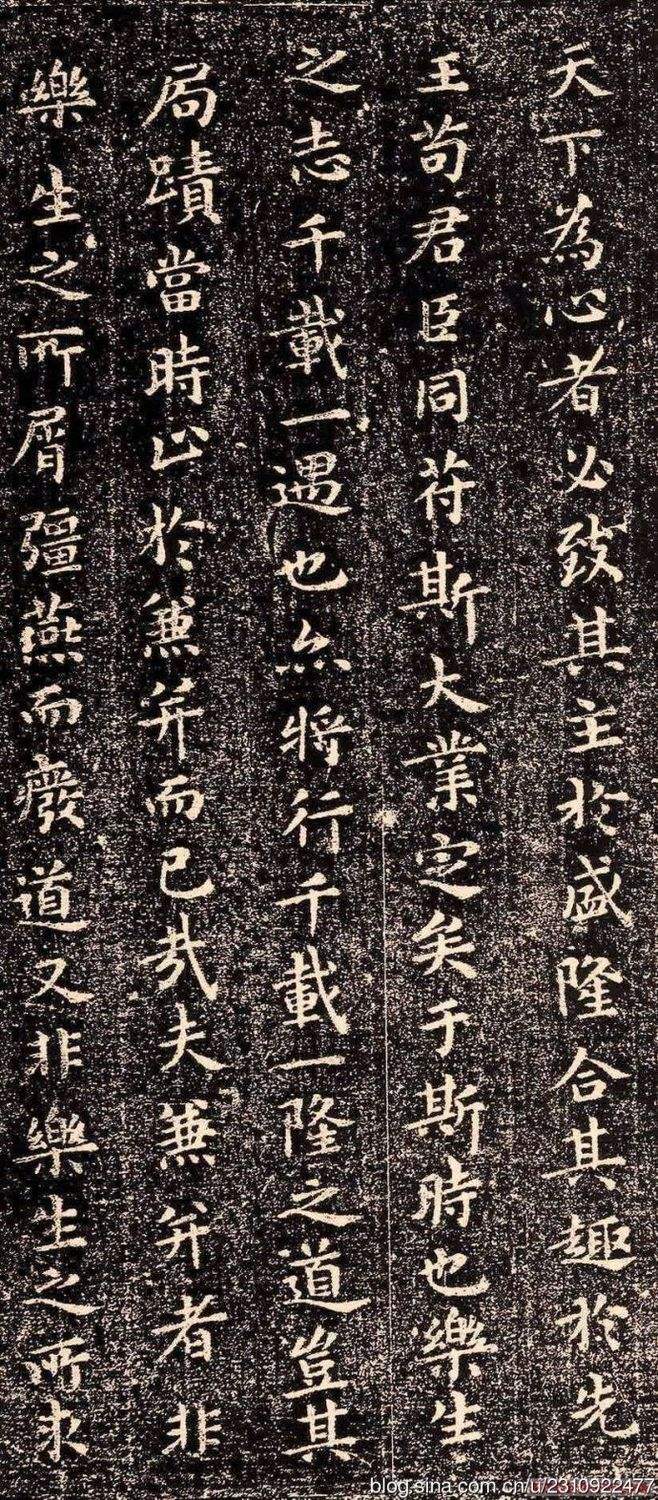 天下為心者必致其主於盛隆合其趣於先
王苟君臣同符斯大業定矣于斯時也樂生
之志千載一遇也亦將行千載一隆之道豈其
局蹟當時止於兼并而已哉夫兼并者非
樂生之所屑彊燕而廢道又非樂生之所求
blog.sina.com.cn/u/2310922477